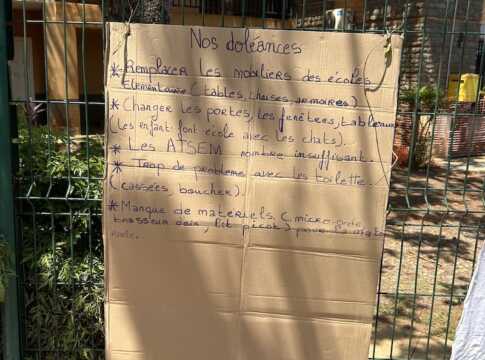 Nos doléances
* Remplacer les mobiliers des écoles
élémentaire (tables chaises armoires)
* Changer les portes, les fenêtres, tableaux
(les enfant font école avec les chats).
* Les ATSEM nombre insuffisant.
* Trop de problème avec les toilette.
(cassées, boucher).
* Manque de materiels. (micro-onde
lit picot) pour la